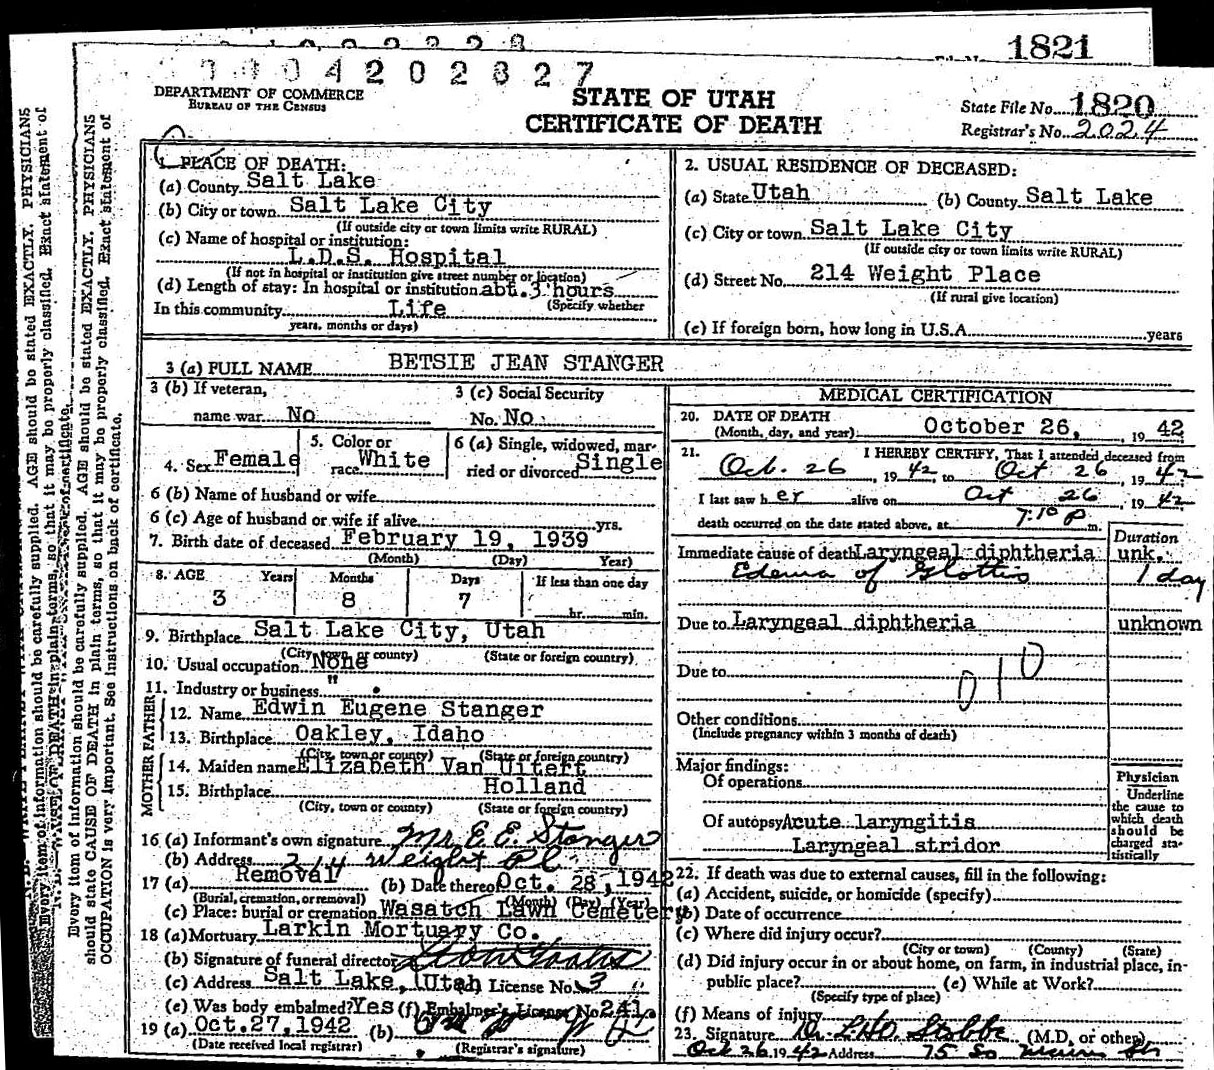 1821
0 4 2 0 2 8 2 7
DEPARTMENT OF COMMERCE
BUREAU OF THE CENSUS
STATE OF UTAH
CERTIFICATE OF DEATH
State File No. 1820
Registrar's No. 2024
1. PLACE OF DEATH:
(a) County Salt Lake
(b) City or town Salt Lake City
(If outside city or town limits write RURAL)
(c) Name of hospital or institution:
L.D.S. Hospital
(If not in hospital or institution give street number or location)
(d) Length of stay: In hospital or institution abt. 3 hours
(Specify whether
In this community Life
years, months or days)
2. USUAL RESIDENCE OF DECEASED:
(a) State Utah (b) County Salt Lake
(c) City or town Salt Lake City
(If outside city or town limits write RURAL)
(d) Street No. 214 Weight Place
(If rural give location)
(e) If foreign born, how long in U.S.A. years
3 (a) FULL NAME BETSIE JEAN STANGER
3 (b) If veteran,
name war No
3 (c) Social Security
No. No
4. Sex Female
5. Color or
race White
6 (a) Single, widowed, mar-
ried or divorced Single
6 (b) Name of husband or wife
6 (c) Age of husband or wife if alive yrs.
7. Birth date of deceased February 19, 1939
(Month) (Day) Year)
8. AGE Years Months Days If less than one day
3 8 7 hr. min.
9. Birthplace Salt Lake City, Utah
(City, town or county) (State or foreign country)
10. Usual occupation None
11. Industry or business "
FATHER
12. Name Edwin Eugene Stanger
13. Birthplace Oakley, Idaho
(City, town or county) (State or foreign country)
MOTHER
14. Maiden name Elizabeth Van Uitert
15. Birthplace Holland
(City, town or county) (State or foreign country)
16 (a) Informant's own signature Mr E. E. Stanger
(b) Address 214 Weight Pl
17 (a) Removal (b) Date thereof Oct. 28, 1942
(Burial, cremation, or removal) (Month) (Day) (Year)
(c) Place: burial or cremation Wasatch Lawn Cemetery
18 (a) Mortuary Larkin Mortuary Co.
(b) Signature of funeral director
(c) Address Salt Lake, Utah License No. 3
(e) Was body embalmed? Yes (f) Embalmer's License No. 241.
19 (a) Oct. 27, 1942 (b)
(Date received local registrar) (Registrar's signature)
MEDICAL CERTIFICATION
20. DATE OF DEATH
(Month, day, and year) October 26, 19 42
21. I HEREBY CERTIFY, That I attended deceased from
Oct. 26, 19 42, to Oct 26, 19 42
I last saw h er alive on Oct 26, 19 42
death occurred on the date stated above, at 7:10 P m.
Duration
Immediate cause of death Laryngeal diphtheria unk.
Edema of Glottis 1 day
Due to Laryngeal diphtheria unknown
Due to
010
Other conditions
(Include pregnancy within 3 months of death)
Major findings:
Of operations
Of autopsy Acute laryngitis
Laryngeal stridor
Physician
Underline
the cause to
which death
should be
charged sta-
tistically
22. If death was due to external causes, fill in the following:
(a) Accident, suicide, or homicide (specify)
(b) Date of occurrence
(c) Where did injury occur?
(City or town) (County) (State)
(d) Did injury occur in or about home, on farm, in industrial place, in-
public place? (e) While at Work?
(Specify type of place)
(f) Means of injury
23. Signature Dr. L.H.O. Stobbe (M.D. or other)
Oct 26 19 42 Address 75 So
Every item of information should be carefully supplied. AGE should be stated EXACTLY. PHYSICIANS
should state CAUSE OF DEATH in plain terms, so that it may be properly classified. Exact statement of
OCCUPATION is very important. See instructions on back of certificate.